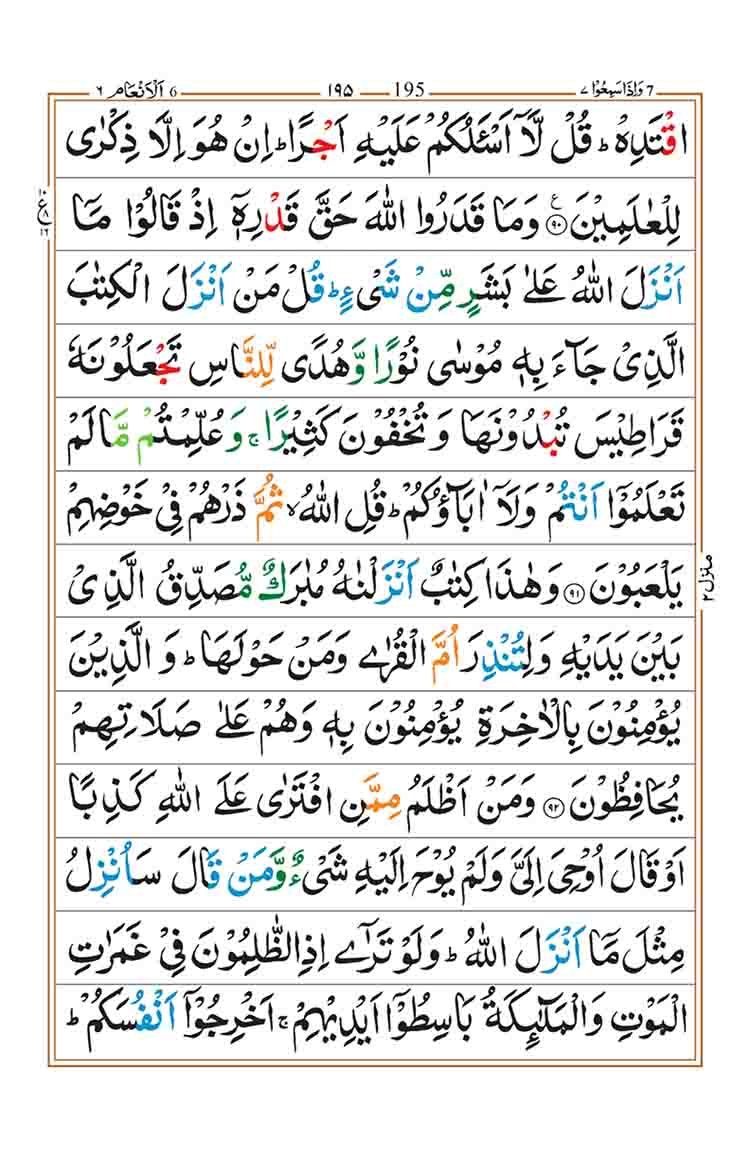 7 وَاِذَا سَمِعُوْا ٧ 195 ١٩٥ 6 اَلْاَنْعَام ٦
اقْتَدِهْ ؕ قُلْ لَّاۤ اَسْـَٔلُكُمْ عَلَيْهِ اَجْرًا ؕ اِنْ هُوَ اِلَّا ذِكْرٰى
لِلْعٰلَمِيْنَ ۝٩٠ ع وَمَا قَدَرُوا اللّٰهَ حَقَّ قَدْرِهٖۤ اِذْ قَالُوْا مَاۤ
ع ١٠ ٨ ١٦
اَنْزَلَ اللّٰهُ عَلٰى بَشَرٍ مِّنْ شَىْءٍ ؕ قُلْ مَنْ اَنْزَلَ الْكِتٰبَ
الَّذِىْ جَآءَ بِهٖ مُوْسٰى نُوْرًا وَّهُدًى لِّلنَّاسِ تَجْعَلُوْنَهٗ
قَرَاطِيْسَ تُبْدُوْنَهَا وَتُخْفُوْنَ كَثِيْرًا ۚ وَعُلِّمْتُمْ مَّا لَمْ
تَعْلَمُوْۤا اَنْتُمْ وَلَاۤ اٰبَآؤُكُمْ ؕ قُلِ اللّٰهُ ۙ ثُمَّ ذَرْهُمْ فِىْ خَوْضِهِمْ
يَلْعَبُوْنَ ۝٩١ وَهٰذَا كِتٰبٌ اَنْزَلْنٰهُ مُبٰرَكٌ مُّصَدِّقُ الَّذِىْ
منزل ٢
بَيْنَ يَدَيْهِ وَلِتُنْذِرَ اُمَّ الْقُرٰى وَمَنْ حَوْلَهَا ؕ وَالَّذِيْنَ
يُؤْمِنُوْنَ بِالْاٰخِرَةِ يُؤْمِنُوْنَ بِهٖ وَهُمْ عَلٰى صَلَاتِهِمْ
يُحَافِظُوْنَ ۝٩٢ وَمَنْ اَظْلَمُ مِمَّنِ افْتَرٰى عَلَى اللّٰهِ كَذِبًا
اَوْ قَالَ اُوْحِىَ اِلَىَّ وَلَمْ يُوْحَ اِلَيْهِ شَىْءٌ وَّمَنْ قَالَ سَاُنْزِلُ
مِثْلَ مَاۤ اَنْزَلَ اللّٰهُ ؕ وَلَوْ تَرٰٓى اِذِ الظّٰلِمُوْنَ فِىْ غَمَرٰتِ
الْمَوْتِ وَالْمَلٰٓئِكَةُ بَاسِطُوْۤا اَيْدِيْهِمْ ۚ اَخْرِجُوْۤا اَنْفُسَكُمْ ؕ